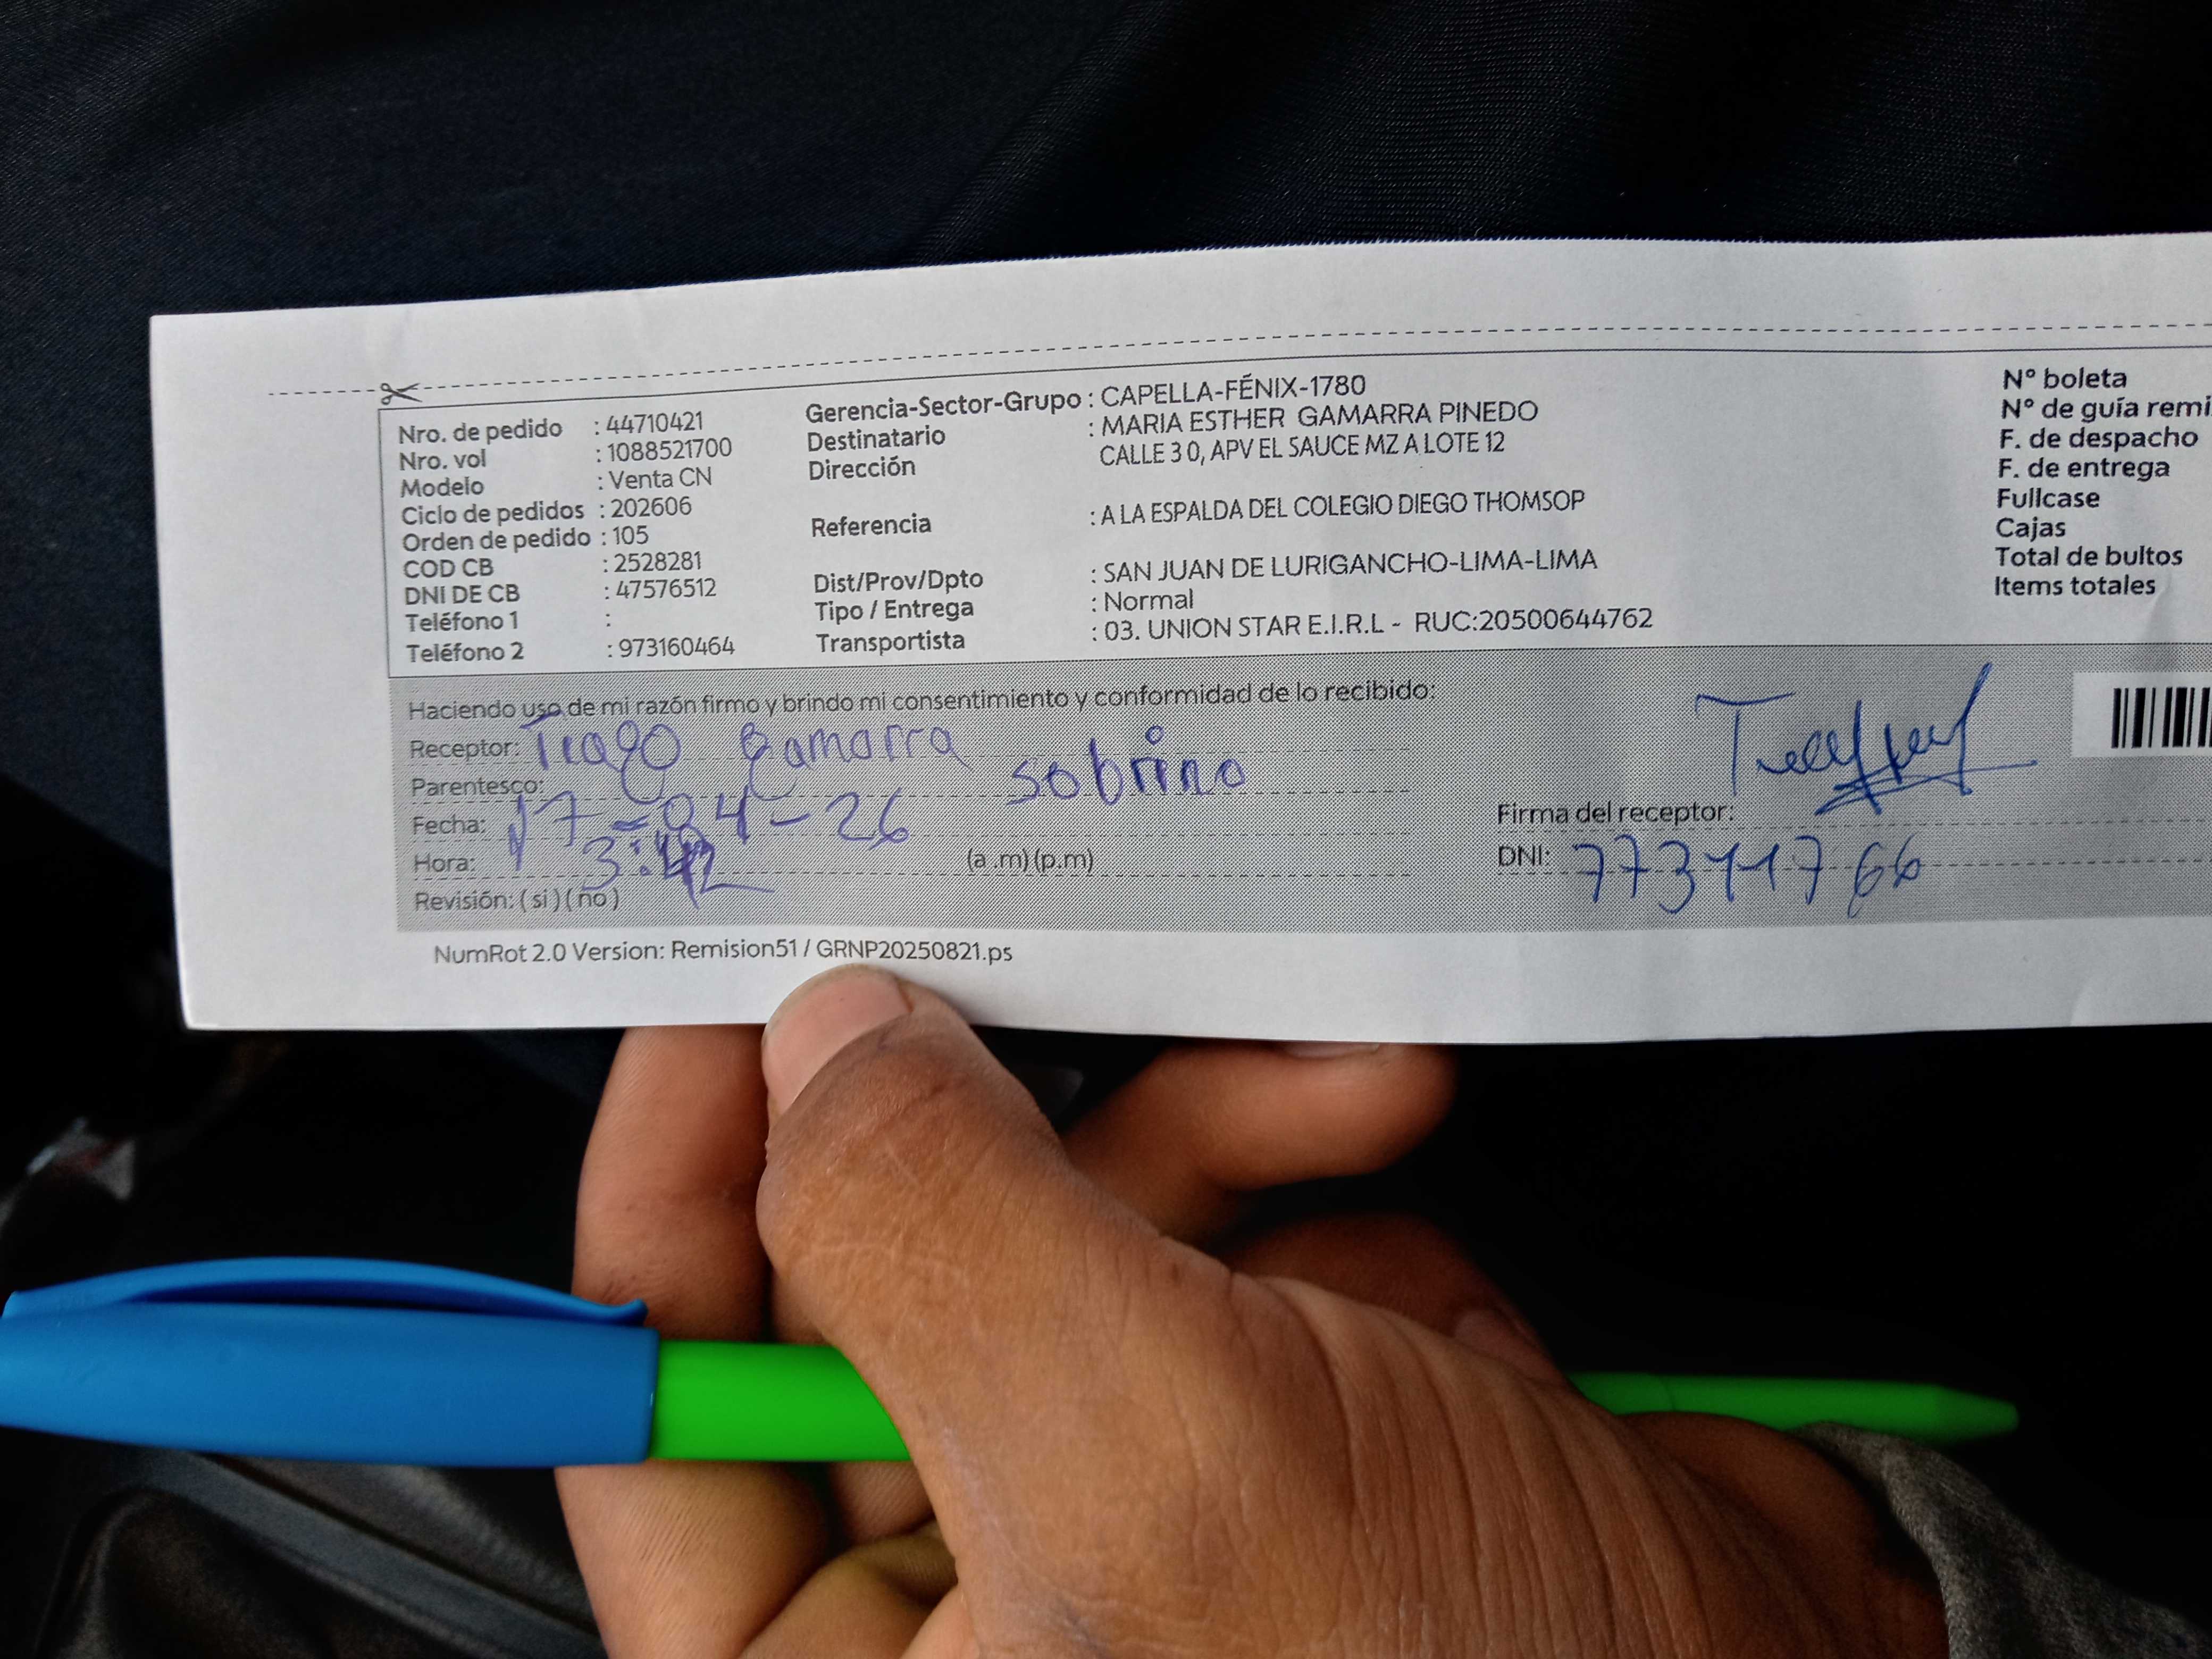 Nro. de pedido : 44710421
Nro. vol : 1088521700
Modelo : Venta CN
Ciclo de pedidos : 202606
Orden de pedido : 105
COD CB : 2528281
DNI DE CB : 47576512
Teléfono 1 :
Teléfono 2 : 973160464
Gerencia-Sector-Grupo : CAPELLA-FÉNIX-1780
Destinatario : MARIA ESTHER GAMARRA PINEDO
Dirección CALLE 3 0, APV EL SAUCE MZ A LOTE 12
Referencia : A LA ESPALDA DEL COLEGIO DIEGO THOMSOP
Dist/Prov/Dpto : SAN JUAN DE LURIGANCHO-LIMA-LIMA
Tipo / Entrega : Normal
Transportista : 03. UNION STAR E.I.R.L - RUC:20500644762
N° boleta
N° de guía remi
F. de despacho
F. de entrega
Fullcase
Cajas
Total de bultos
Items totales
Haciendo uso de mi razón firmo y brindo mi consentimiento y conformidad de lo recibido:
Receptor: Tiago Gamarra
Parentesco: sobrino
Fecha: 17-04-26
Hora: 3:42 (a .m) (p.m)
Revisión: ( si ) ( no )
Firma del receptor:
DNI:
NumRot 2.0 Version: Remision51 / GRNP20250821.ps